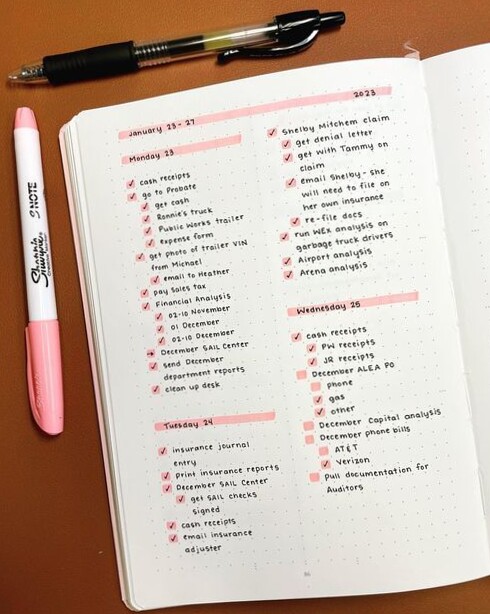 January 23-27
2023
Monday 23
cash receipts
go to Probate
get cash
Ronnie's truck
Public Works trailer
expense form
get photo of trailer VIN
from Michael
email to Heather
pay sales tax
Financial Analysis
02-10 November
01 December
02-10 December
December SAIL Center
send December
department reports
clean up desk
Tuesday 24
insurance journal
entry
print insurance reports
December SAIL Center
get SAIL checks
signed
cash receipts
email insurance
adjuster
Shelby Mitchem claim
get denial letter
get with Tammy on
claim
email Shelby - she
will need to file on
her own insurance
re-file docs
run WEx analysis on
garbage truck drivers
Airport analysis
Arena analysis
Wednesday 25
cash receipts
PW receipts
JR receipts
December ALEA PO
phone
gas
other
December Capital analysis
December phone bills
AT&T
Verizon
pull documentation for
Auditors
Sharpie
S·NOTE